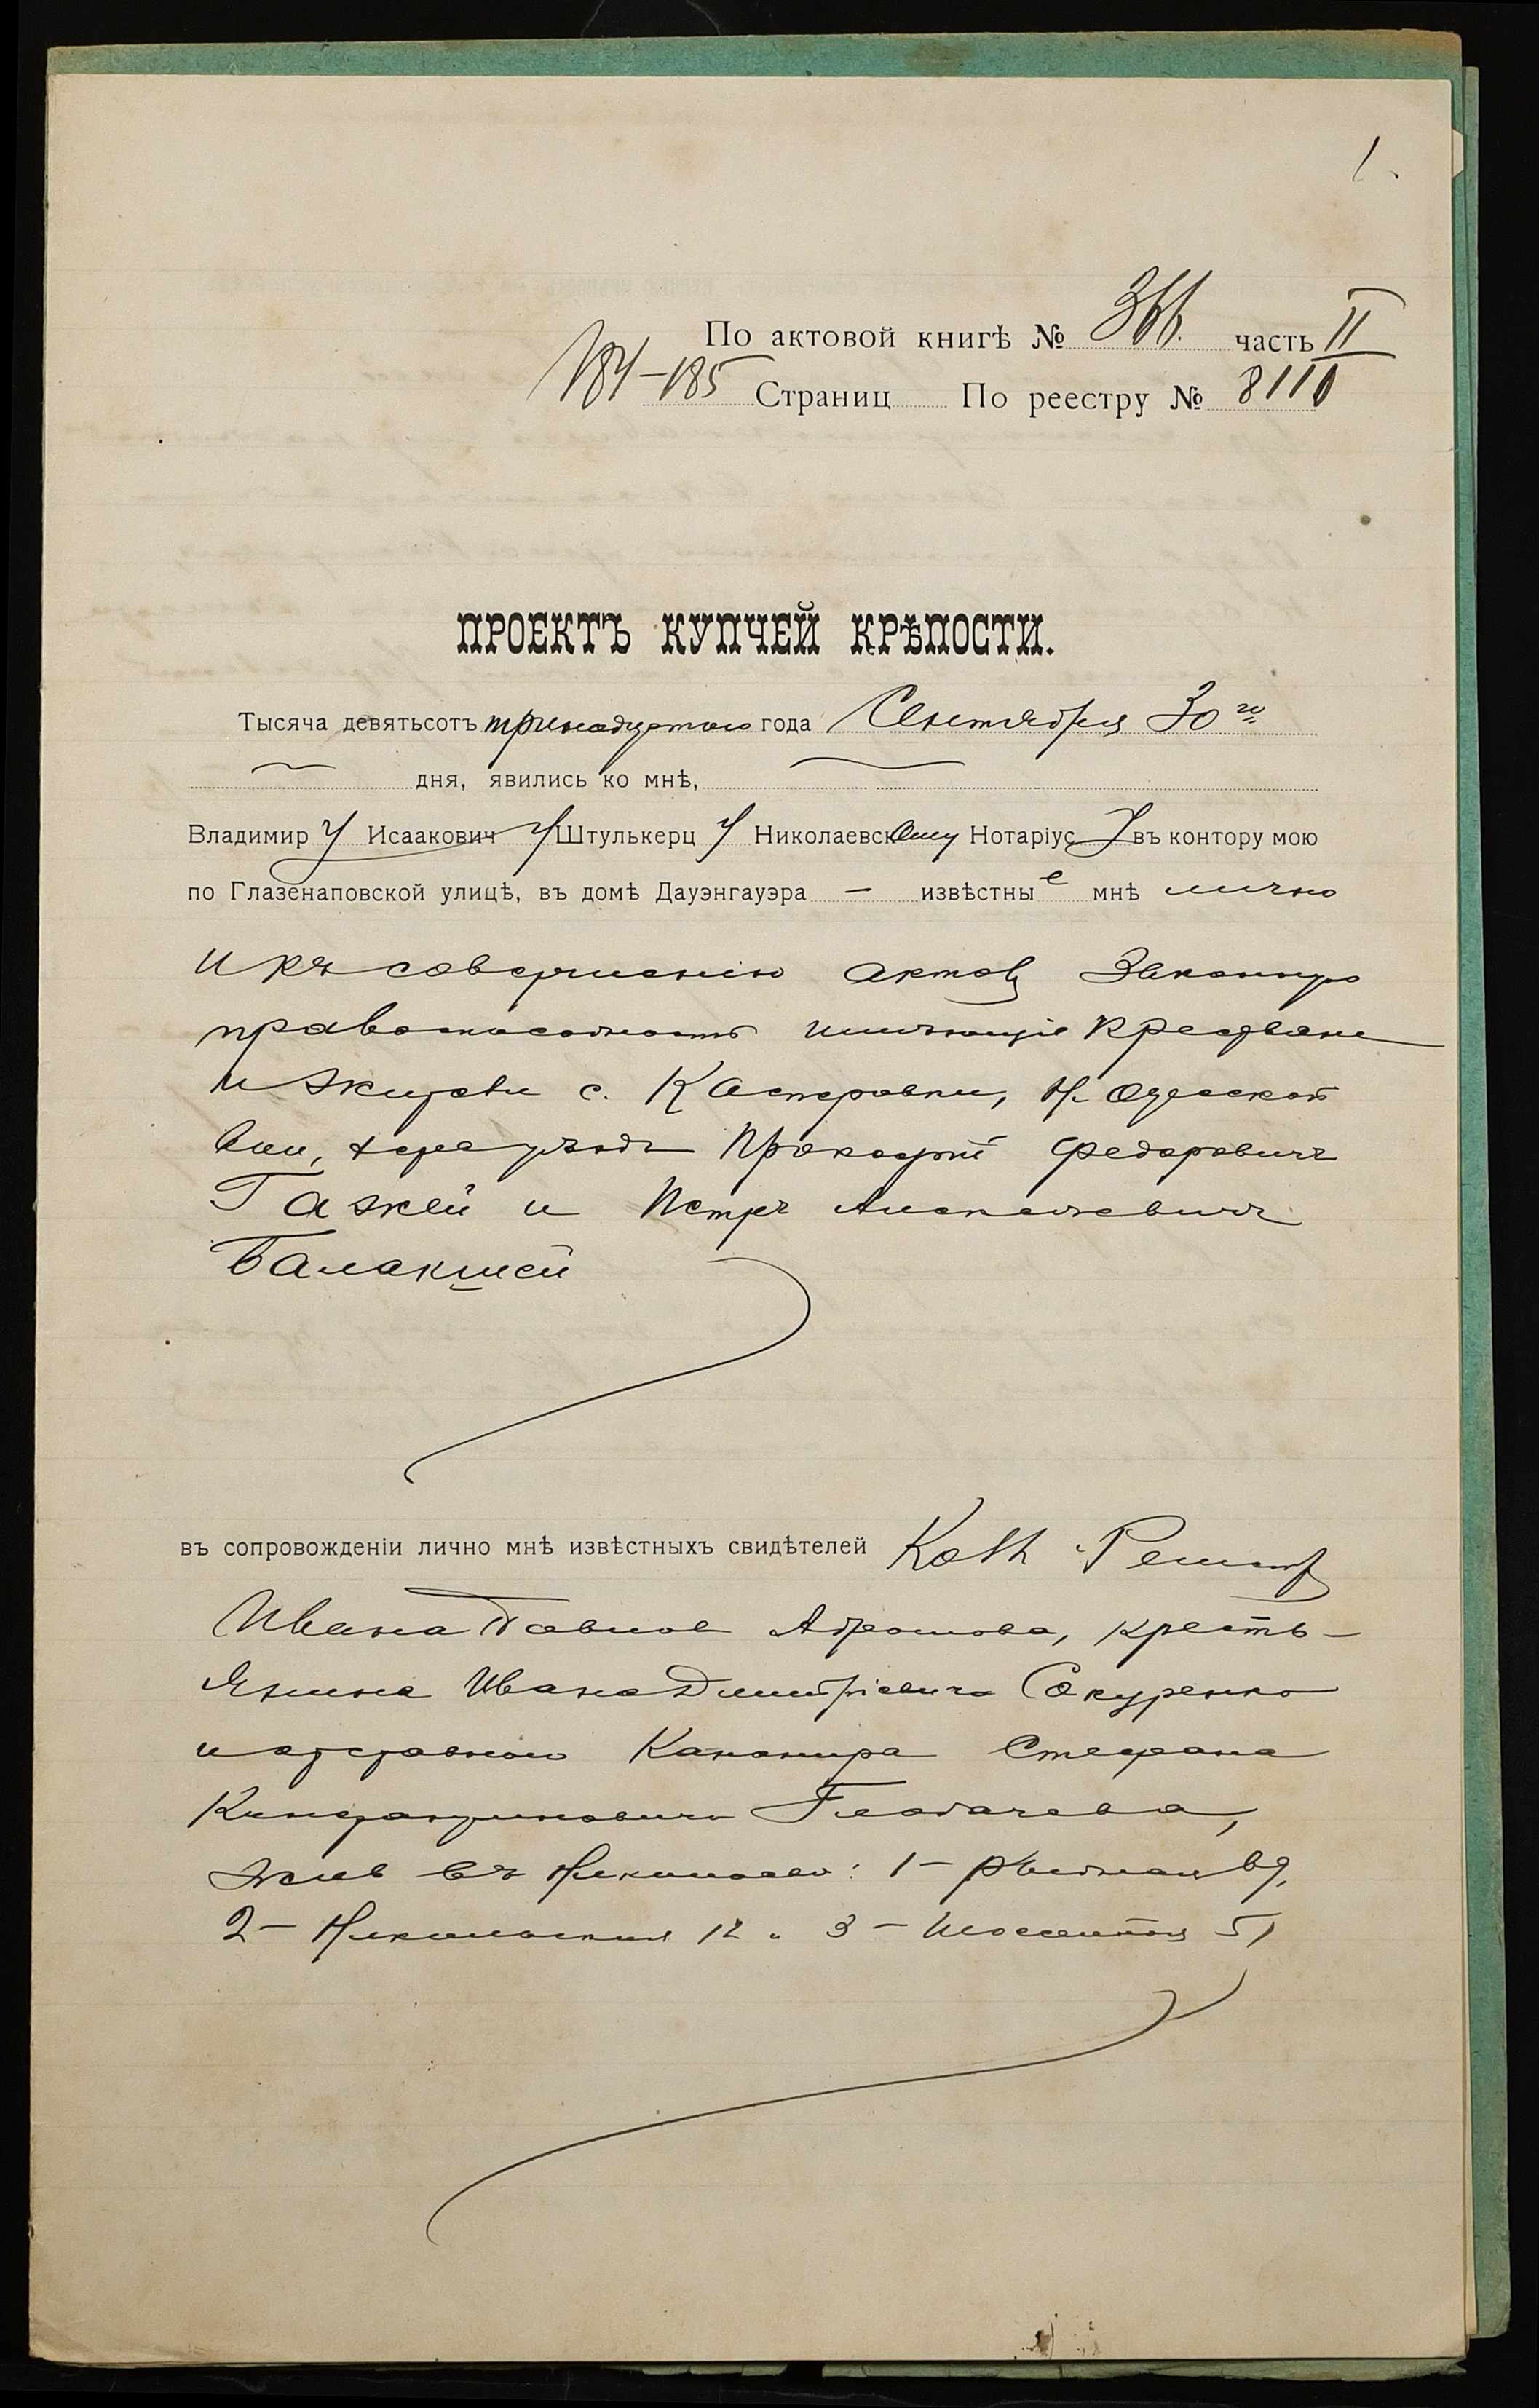 1.
По актовой книгѣ № 366. часть II
184–185 Страниц По реестру № 8110
ПРОЕКТЪ КУПЧЕЙ КРѢПОСТИ.
Тысяча девятьсотъ тринадцатого года Сентября 30 го
дня, явились ко мнѣ,
Владимир у Исаакович у Штулькерц у Николаевскому Нотаріус у въ контору мою
по Глазенаповской улицѣ, въ домѣ Дауэнгауэра — извѣстные мнѣ лично
и къ совершенію актовъ законную
правоспособность имѣющіе Крестьяне
и жители с. Касперовки, Н. Одесской
вол, Херс уѣзда Федоровичъ
Гажей и Петръ Алексѣевичъ
Балакшей
въ сопровожденіи лично мнѣ извѣстныхъ свидѣтелей Колл Регистр
Ивана Абрамова, кресть-
янина Ивана Дмитріевича Сокуренко
и отставного Канонира Стефана
Константиновича
жив въ Николаевѣ: 1– Рыбная
2– Никольская 12 и 3 – 51